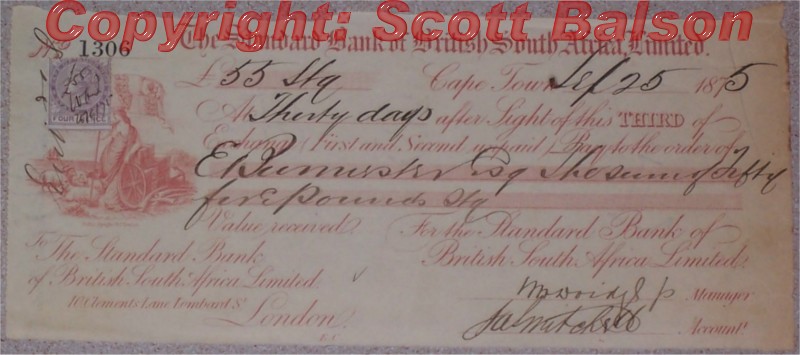 Copyright: Scott Balson
No 1306 The Standard Bank of British South Africa, Limited.
£ 55 Stg Cape Town Sep 25 1875
FOUR PENCE
At Thirty days after Sight of this THIRD of
Exchange (First and Second unpaid) Pay to the order of
E Burmester Esq The sum of Fifty
five Pounds Stg
Value received For the Standard Bank of
British South Africa Limited.
To The Standard Bank
of British South Africa Limited.
10 Clements Lane Lombard St
London
E.C.
Manager
Accountt